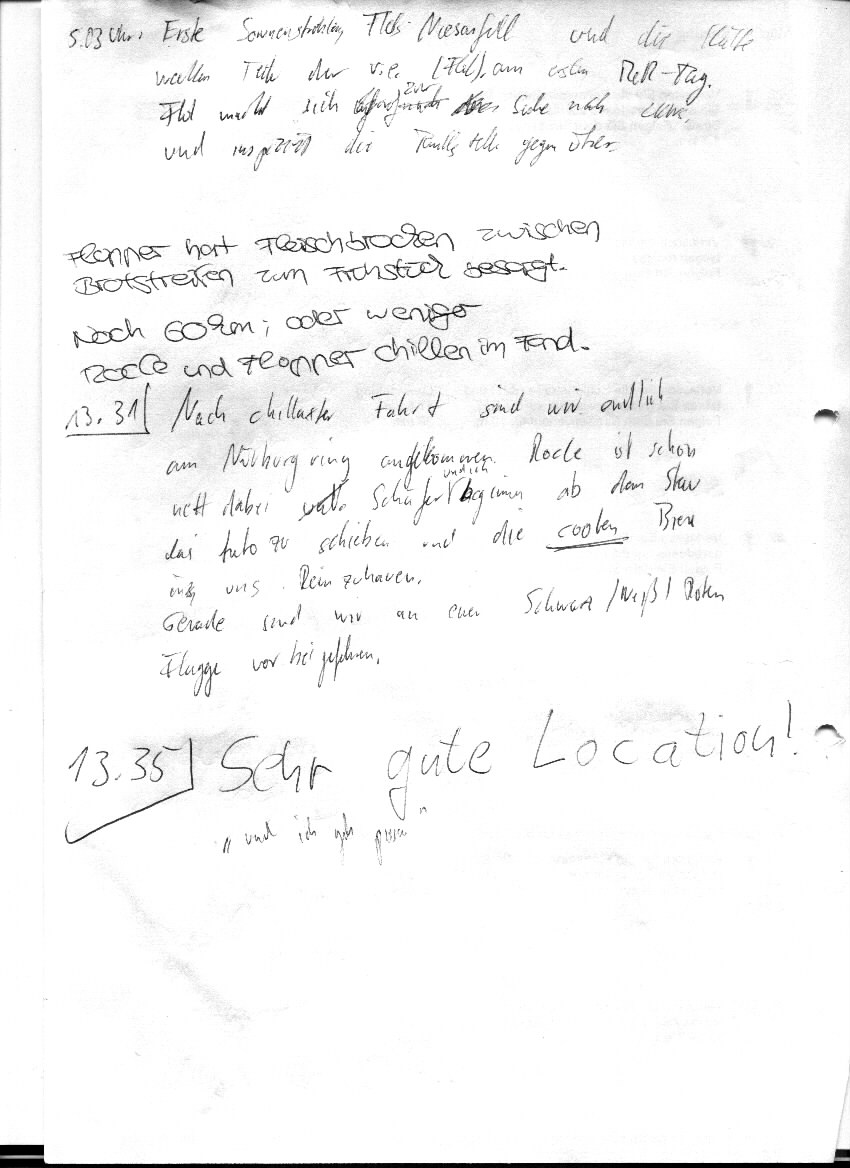 5.03 Uhr: Erste Sonnenstrahlen, Flos Niesanfall und die
der v.e. (Flo), am ersten RaR-Tag.
Flo macht sich zur Suche nach
und die Tankstelle gegenüber.
Flopper hat Fleischbrocken zwischen
Brotstreifen zum Frühstück besorgt.
Noch 60km; oder weniger
und Flopper chillen im Fond.
13.31 Nach chilliaster Fahrt sind wir endlich
am Nürburgring angekommen. ist schon
nett dabei Schäfer und ich beginnen ab dem Stau
das Auto zu schieben und die coolen
uns Reinzuhauen.
Gerade sind wir an einer Schwarz/Weiß/Roten
Flagge vorbeigefahren.
13.35 Sehr gute Location!
"und ich geh pissen"